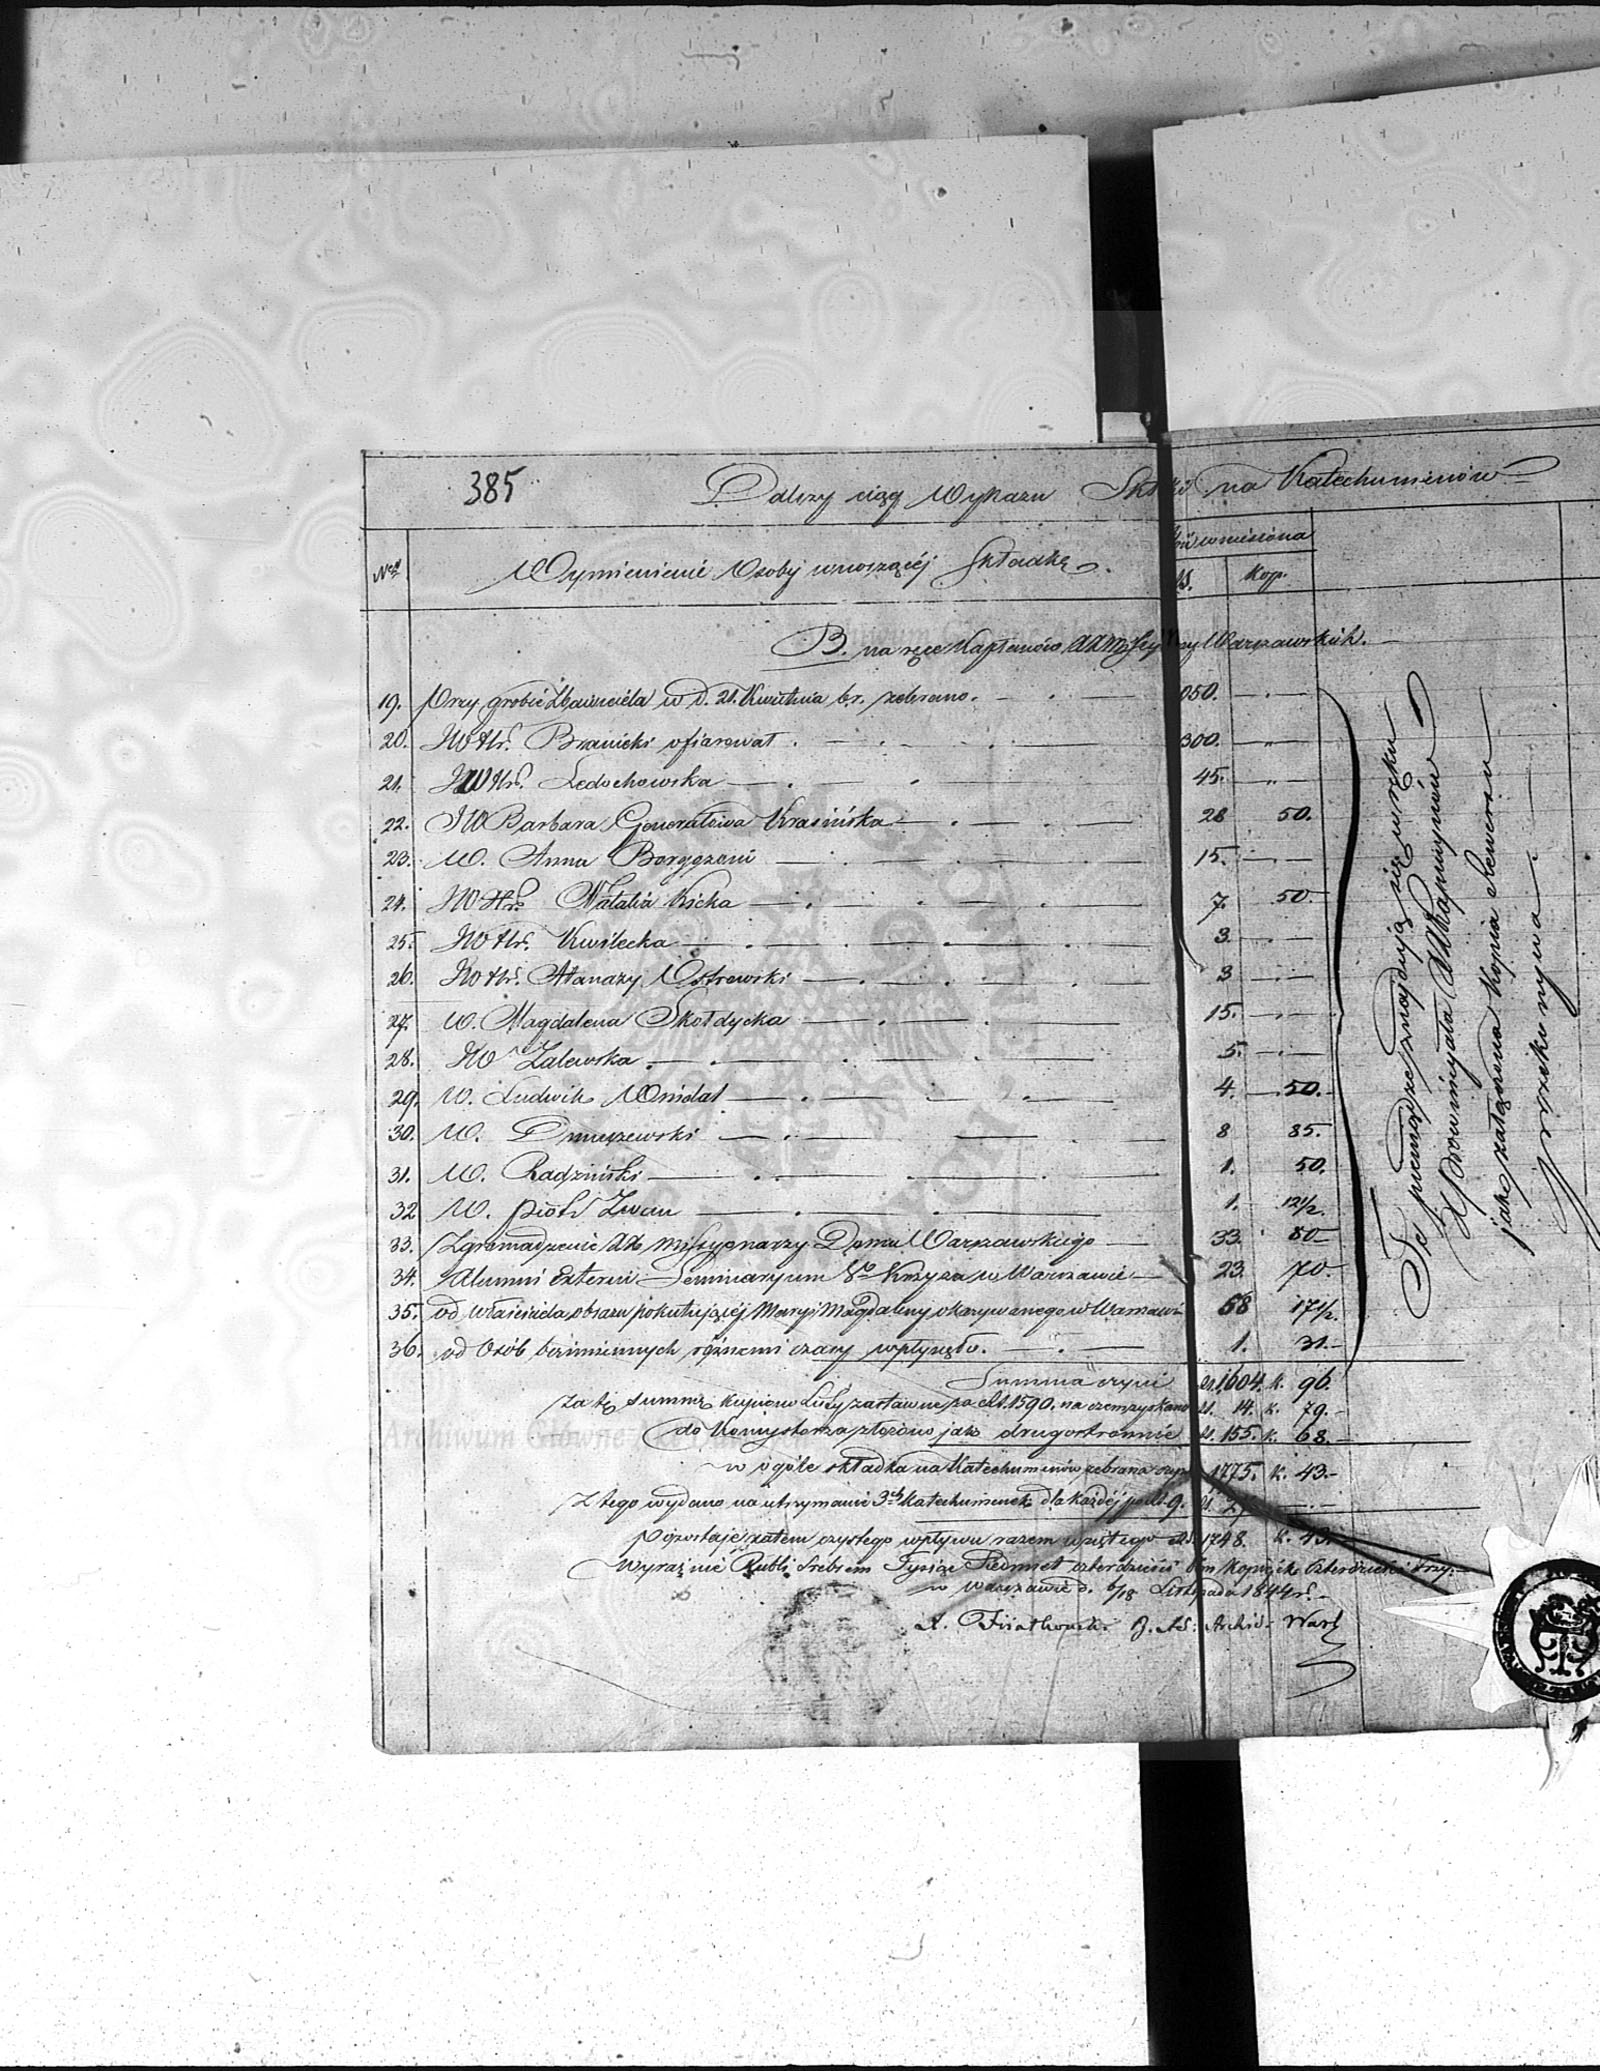 385
Dalszy ciąg Wykazu Składki na Katechumenów
Nr Wymienienie Osoby wnoszącéj Składkę. wniesiona
Kop.
B. na ręce Kapłanów Warszawskich.
19. Przy grobie Zbawiciela w d. 21. Kwietnia b.r. zebrano. 050. "
20. JW Hr. Branicki ofiarował 300. "
21. JW Hr. Ledochowska 45. "
22. JW Barbara Generałowa Krasińska 28 50.
23. W. Anna 15.
24. JW Hr. Natalia Kicka 7. 50
25. JW Hr. Kwilecka 3.
26. JW Hr. Atanazy Ostrowski 3
27. W. Magdalena Skołdycka 15.
28. JW Zalewska 5.
29. W. Ludwik 4. 50.
30. W. Dmuszewski 8 85.
31. W. Radziński 1. 50.
32 W. Piotr 1. 12½.
33. Zgromadzenie XX Missyonarzy Domu Warszawskiego 33. 80
34. Alumni Externi Seminaryum So Krzyża w Warszawie 23. 70.
35. od właściciela obrazu pokutującéj Maryi Magdaleny okazywanego w Warszawie 68 17½.
36. od Osób bezimiennych różnemi czasy wpłynęło. 1. 31.
Summa czyni rs. 1604. k. 96.
Za tę summę kupiono Listy zastawne za 1590. na czem zyskano 14. k. 79.
do Konsystorza złożono jako drugostronnie 155. k. 68.
w ogóle składka na Katechumenów zebrana 1775. k. 43.
Z tego wydano na utrzymanie 3ch Katechumenek dla każdéj po 9. 27.
Pozostaje zatem czystego wpływu razem wziętego 1748. k. 43.
Wyraźnie Rubli Srebrem Tysiąc Siedmset czterdzieści ośm Kopiejek czterdzieści trzy.
w Warszawie d. 6/18 Listopada 1844 r.
A. Fijałkowski Archid. Warsz
Te pieniądze znajdują się w ręku
XX Kapucynów
jako załączona Kopia Rewersu
przekonywa